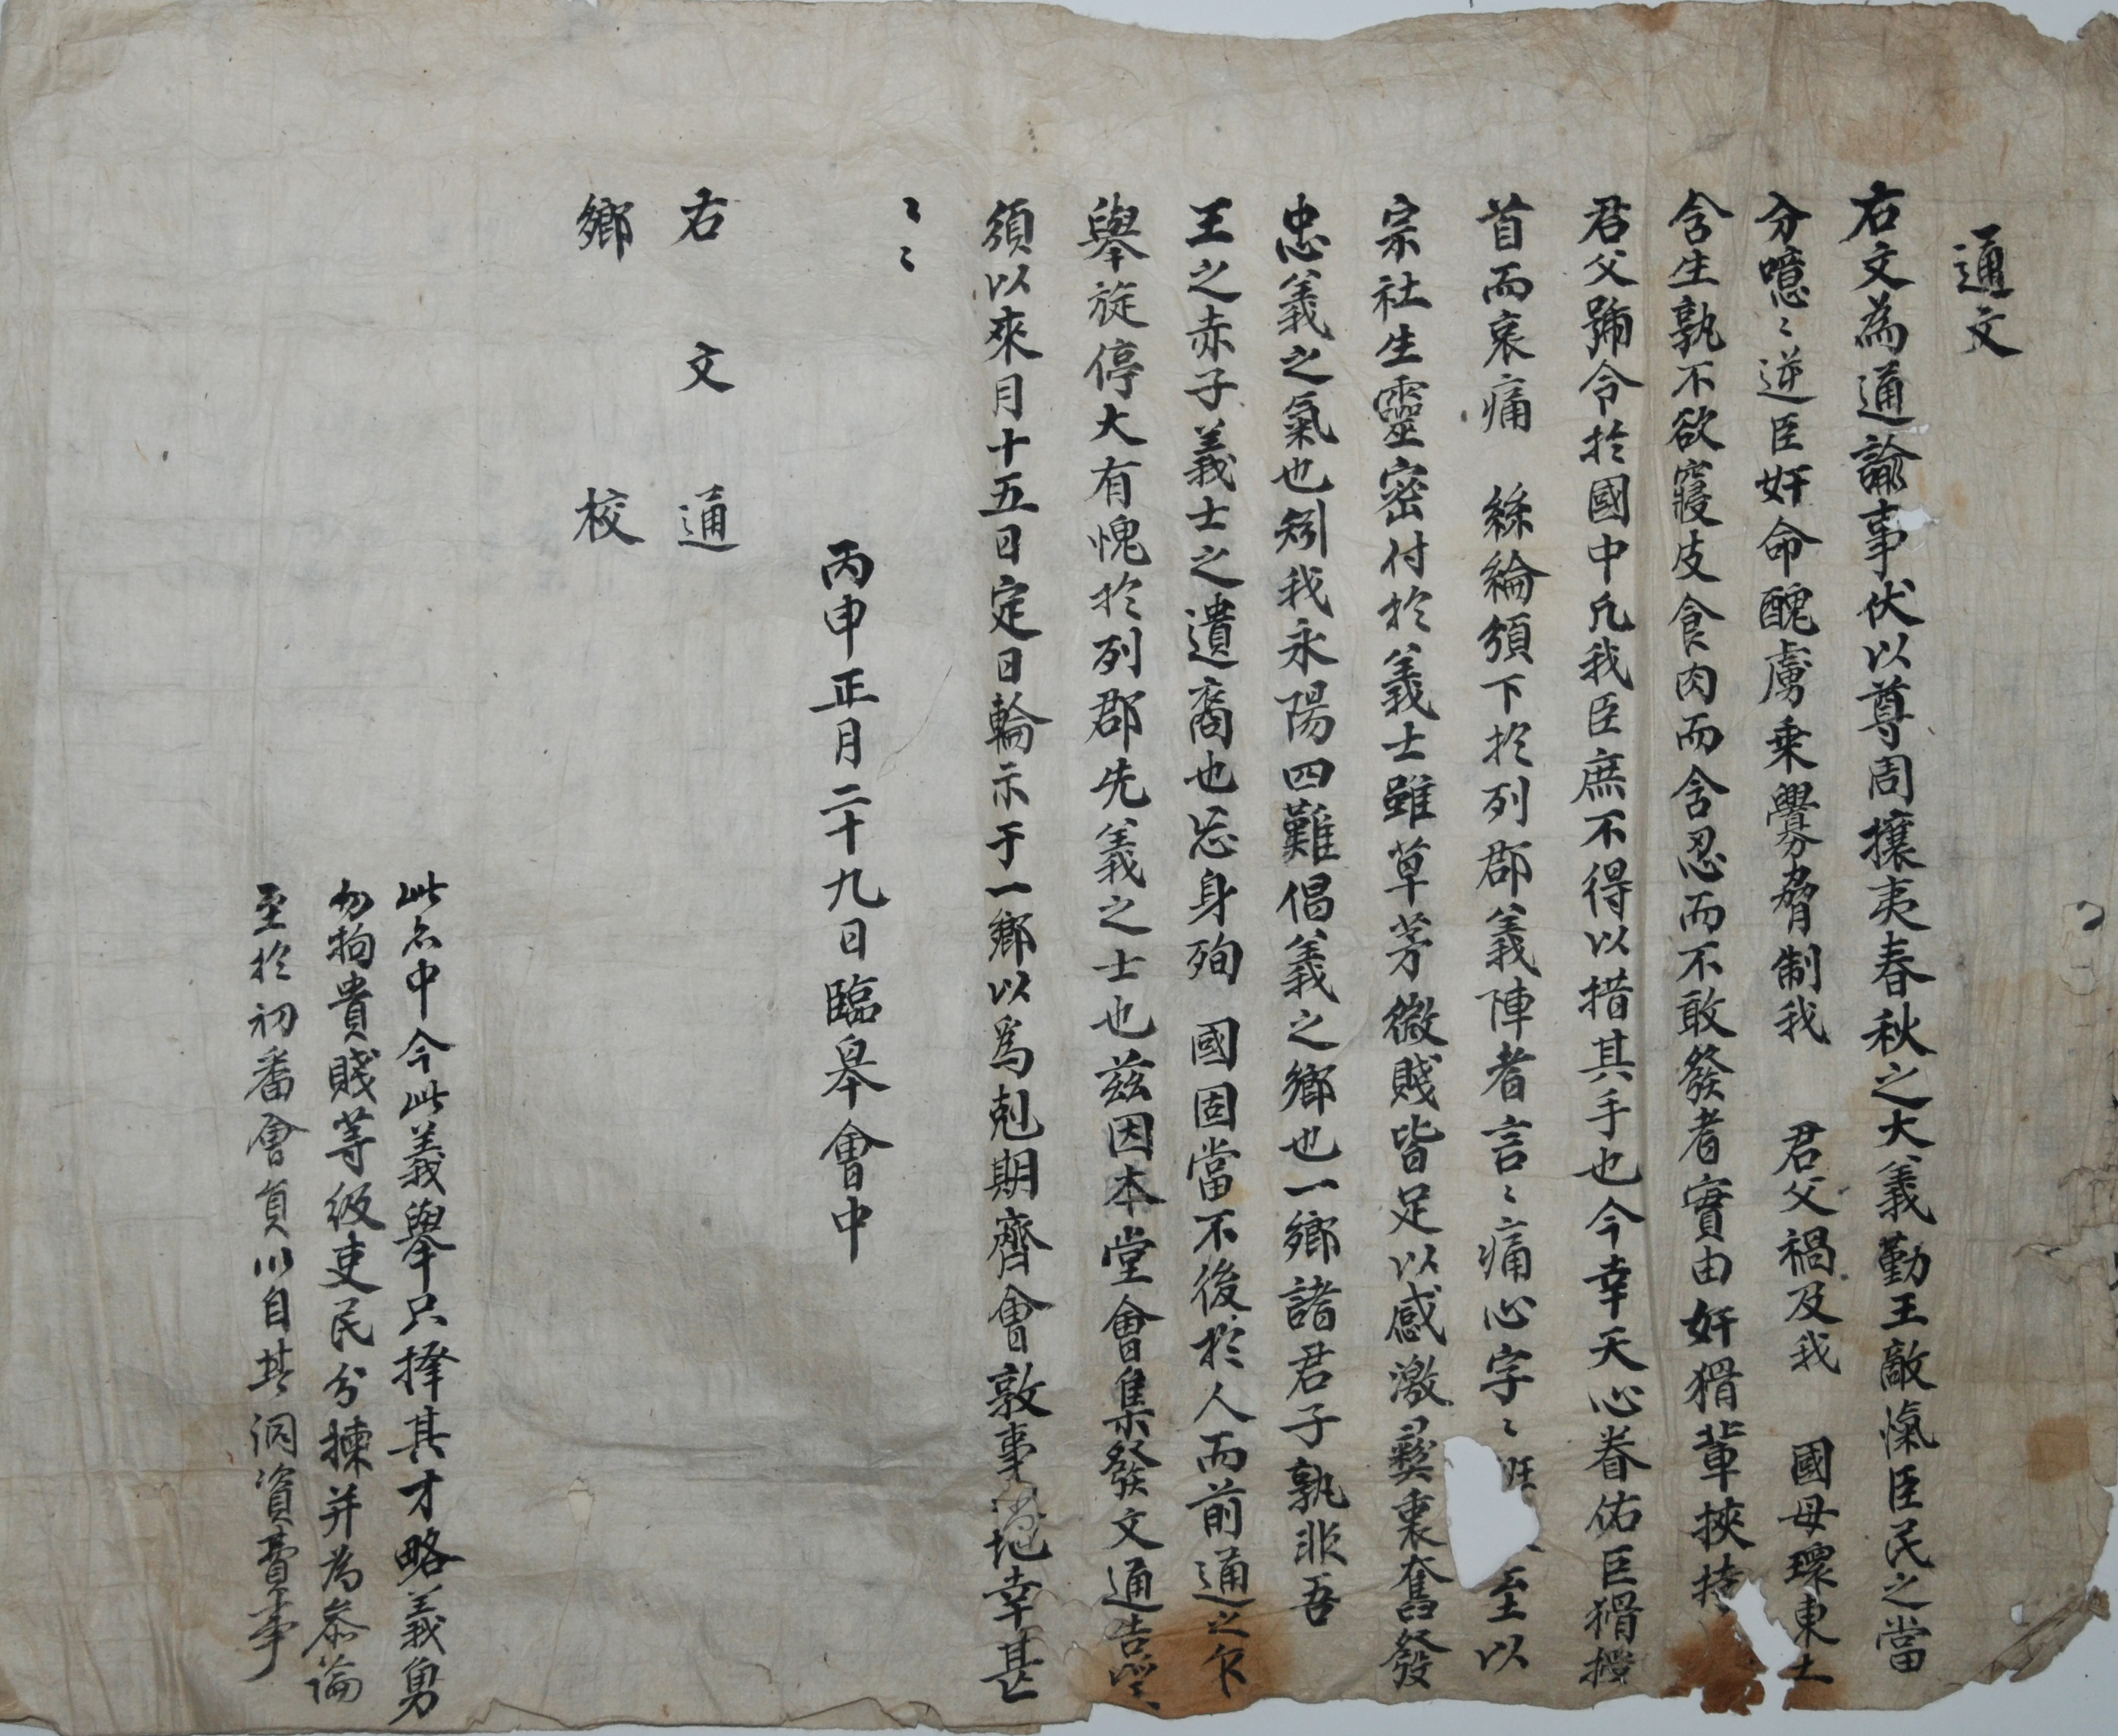 通文
右文為通諭事伏以尊周攘夷春秋之大義勤王敵愾臣民之當
分噫〻逆臣奸命醜虜乘釁脅制我 君父禍及我 國母環東土
含生孰不欲寢皮食肉而含忍而不敢發者實由奸猾輩挾持
君父號令於國中凡我臣庶不得以措其手也今幸天心眷佑巨猾
首而哀痛 絲綸頒下於列郡義陣者言〻痛心字〻 至以
宗社生靈密付於義士雖草芽微賤皆足以感激彛衷奮發
忠義之氣也矧我永陽四難倡義之鄉也一鄉諸君子孰非吾
王之赤子義士之遺裔也忘身殉 國固當不後於人而前通之乍
擧旋停大有愧於列郡先義之士也玆因本堂會集發文通告
須以來月十五日定日輪示于一鄉以爲剋期齊會敦事 地幸甚
〻〻
丙申正月二十九日臨皋會中
右文通
鄉校
此亦中今此義擧只擇其才略義勇
勿拘貴賤等級吏民分揀并為參論
至於初番會員以自其洞資費事